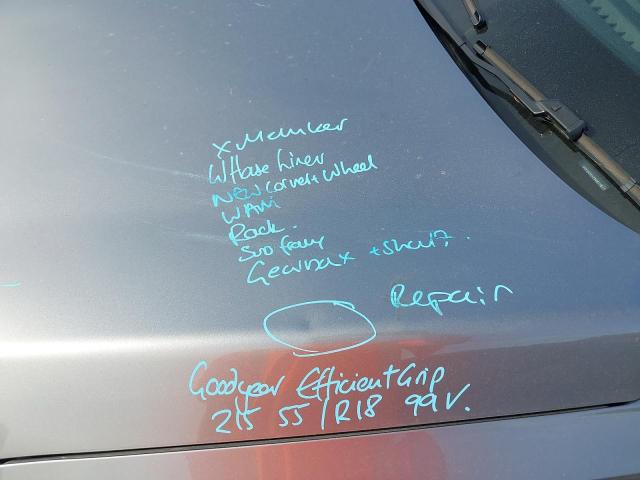 X Member
W/House Liner
NEW Correct Wheel
WAM
Rack.
Sub frame
Gearbox + Shaft?.
Repair
Goodyear EfficientGrip
215 55/R18 99V.